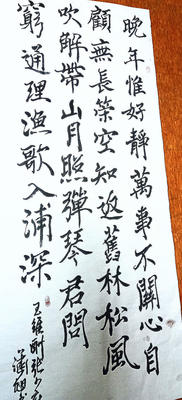 晚年惟好靜萬事不關心自
顧無長策空知返舊林松風
吹解帶山月照彈琴君問
窮通理漁歌入浦深
王維酬張少府